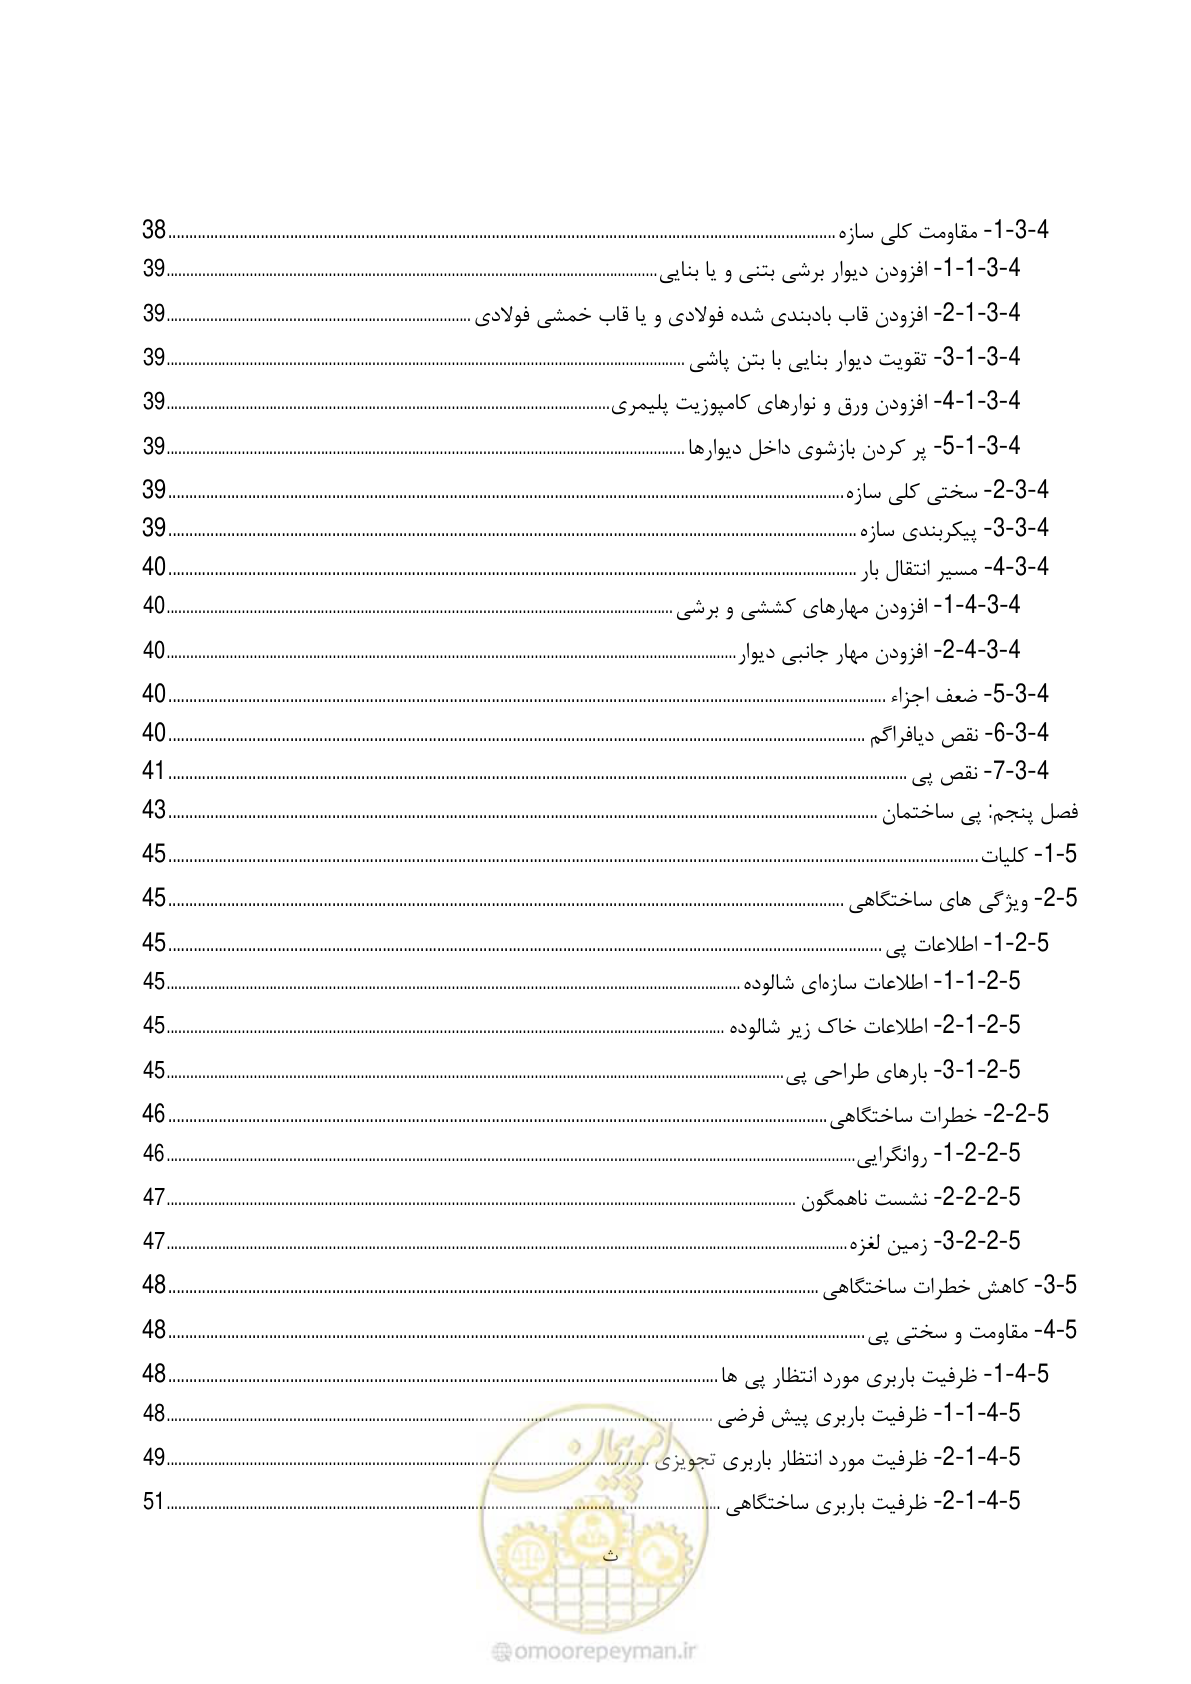 4-3-1- مقاومت کلی سازه ........ 38
4-3-1-1- افزودن دیوار برشی بتنی و یا بنایی ........ 39
4-3-1-2- افزودن قاب بادبندی شده فولادی و یا قاب خمشی فولادی ........ 39
4-3-1-3- تقویت دیوار بنایی با بتن پاشی ........ 39
4-3-1-4- افزودن ورق و نوارهای کامپوزیت پلیمری ........ 39
4-3-1-5- پر کردن بازشوی داخل دیوارها ........ 39
4-3-2- سختی کلی سازه ........ 39
4-3-3- پیکربندی سازه ........ 39
4-3-4- مسیر انتقال بار ........ 40
4-3-4-1- افزودن مهارهای کششی و برشی ........ 40
4-3-4-2- افزودن مهار جانبی دیوار ........ 40
4-3-5- ضعف اجزاء ........ 40
4-3-6- نقص دیافراگم ........ 40
4-3-7- نقص پی ........ 41
فصل پنجم: پی ساختمان ........ 43
5-1- کلیات ........ 45
5-2- ویژگی های ساختگاهی ........ 45
5-2-1- اطلاعات پی ........ 45
5-2-1-1- اطلاعات سازه‌ای شالوده ........ 45
5-2-1-2- اطلاعات خاک زیر شالوده ........ 45
5-2-1-3- بارهای طراحی پی ........ 45
5-2-2- خطرات ساختگاهی ........ 46
5-2-2-1- روانگرایی ........ 46
5-2-2-2- نشست ناهمگون ........ 47
5-2-2-3- زمین لغزه ........ 47
5-3- کاهش خطرات ساختگاهی ........ 48
5-4- مقاومت و سختی پی ........ 48
5-4-1- ظرفیت باربری مورد انتظار پی ها ........ 48
5-4-1-1- ظرفیت باربری پیش فرضی ........ 48
5-4-1-2- ظرفیت مورد انتظار باربری تجویزی ........ 49
5-4-1-2- ظرفیت باربری ساختگاهی ........ 51
امور پیمان
ث
@omoorepeyman.ir